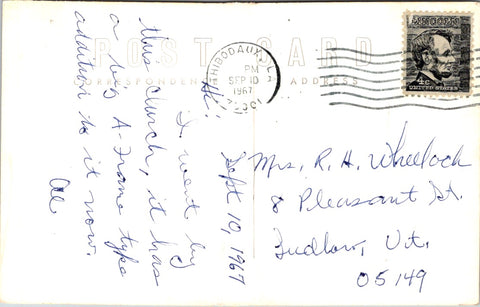 POST CARD
CORRESPONDENCE ADDRESS
THIBODAUX, LA
PM
SEP 10
1967
70301
LINCOLN
4c
UNITED STATES
Hi!
I went by
this church, it has
a big A-Frame type
addition to it now.
Al
Sept 10, 1967
Mrs. R. H. Wheelock
8 Pleasant St.
Ludlow, Vt.
05149